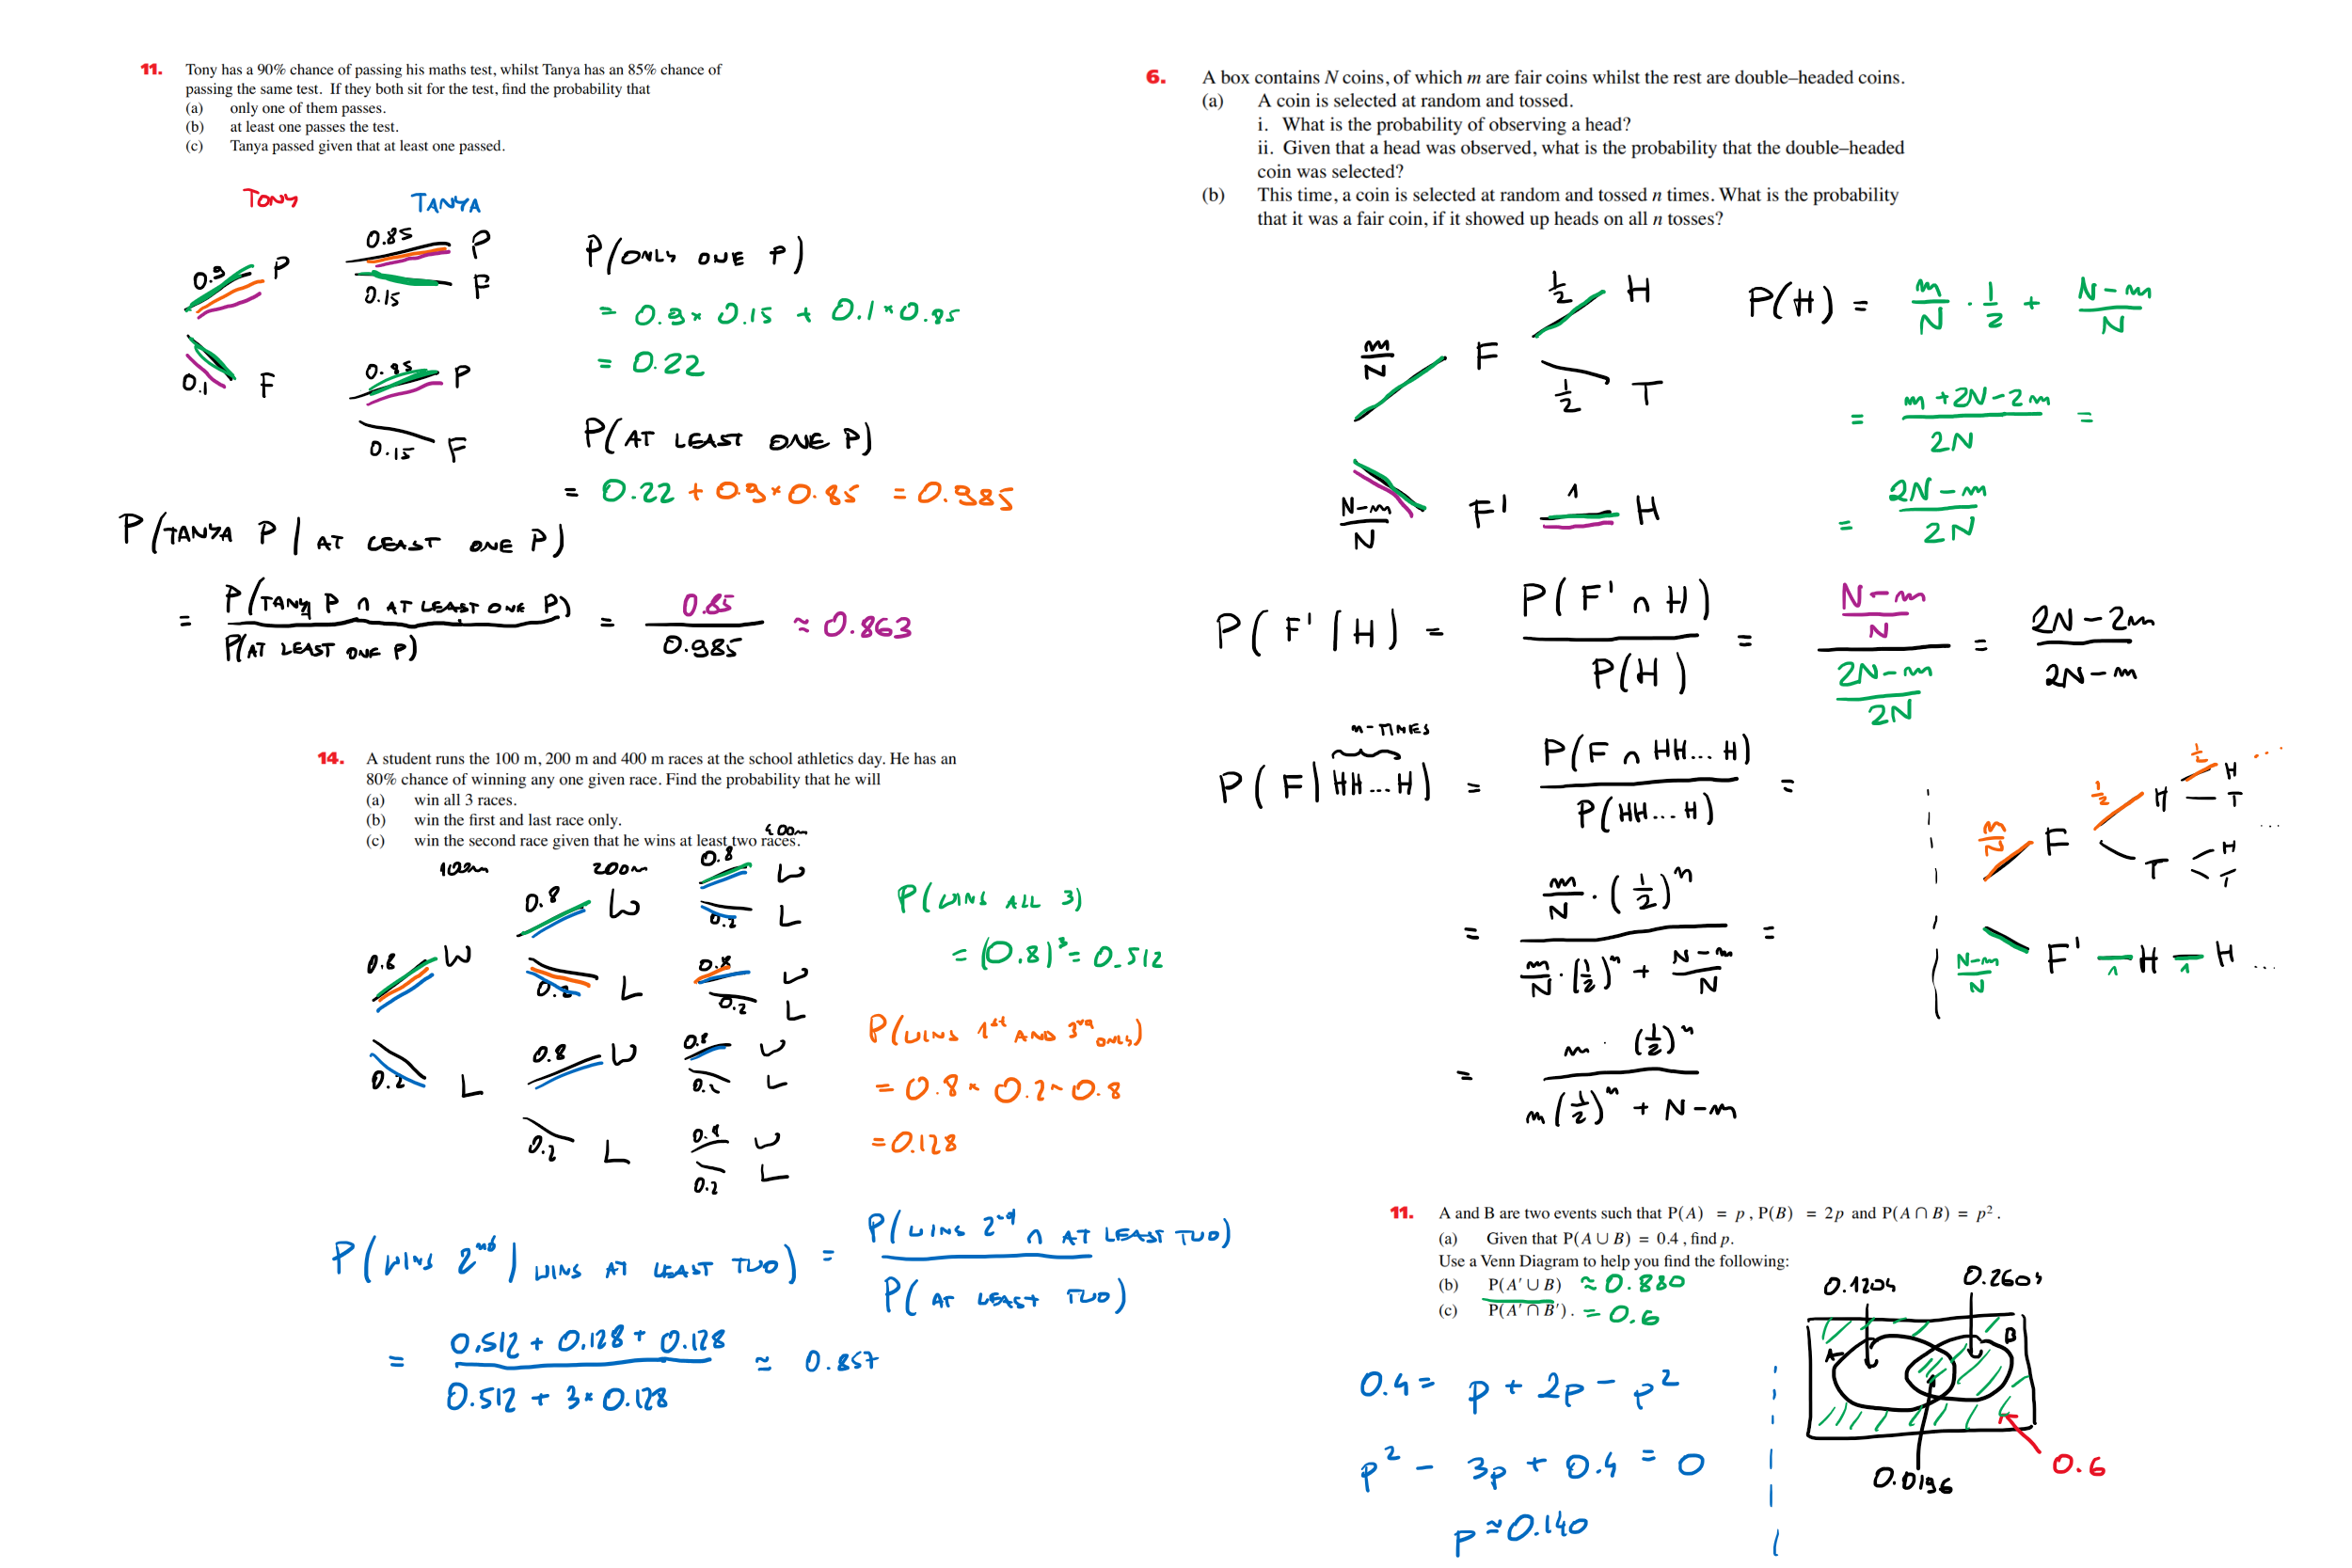 11. Tony has a 90% chance of passing his maths test, whilst Tanya has an 85% chance of
passing the same test. If they both sit for the test, find the probability that
(a) only one of them passes.
(b) at least one passes the test.
(c) Tanya passed given that at least one passed.
TONY TANYA
0.9 P 0.85 P
0.15 F
0.1 F 0.85 P
0.15 F
P(ONLY ONE P)
= 0.9 × 0.15 + 0.1 × 0.85
= 0.22
P(AT LEAST ONE P)
= 0.22 + 0.9 × 0.85 = 0.985
P(TANYA P | AT LEAST ONE P)
= P(TANYA P ∩ AT LEAST ONE P) / P(AT LEAST ONE P) = 0.85 / 0.985 ≈ 0.863
14. A student runs the 100 m, 200 m and 400 m races at the school athletics day. He has an
80% chance of winning any one given race. Find the probability that he will
(a) win all 3 races.
(b) win the first and last race only.
(c) win the second race given that he wins at least two races.
100m 200m 400m
0.8 W 0.8 W 0.8 W
0.2 L
0.2 L 0.8 W
0.2 L
0.2 L 0.8 W 0.8 W
0.2 L
0.2 L 0.8 W
0.2 L
P(WINS ALL 3)
= (0.8)³ = 0.512
P(WINS 1st AND 3rd ONLY)
= 0.8 × 0.2 × 0.8
= 0.128
P(WINS 2nd | WINS AT LEAST TWO) = P(WINS 2nd ∩ AT LEAST TWO) / P(AT LEAST TWO)
= 0.512 + 0.128 + 0.128 / 0.512 + 3 × 0.128 ≈ 0.857
6. A box contains N coins, of which m are fair coins whilst the rest are double–headed coins.
(a) A coin is selected at random and tossed.
i. What is the probability of observing a head?
ii. Given that a head was observed, what is the probability that the double–headed
coin was selected?
(b) This time, a coin is selected at random and tossed n times. What is the probability
that it was a fair coin, if it showed up heads on all n tosses?
m/N F 1/2 H
1/2 T
N-m/N F' 1 H
P(H) = m/N · 1/2 + N-m/N
= m+2N-2m / 2N =
= 2N-m / 2N
P(F'|H) = P(F' ∩ H) / P(H) = N-m/N / 2N-m/2N = 2N-2m / 2N-m
n-TIMES
P(F|HH...H) = P(F ∩ HH...H) / P(HH...H) =
= m/N · (1/2)ⁿ / m/N · (1/2)ⁿ + N-m/N =
= m · (1/2)ⁿ / m(1/2)ⁿ + N-m
m/N F 1/2 H 1/2 H ...
T ...
T H
T
N-m/N F' 1 H 1 H ...
11. A and B are two events such that P(A) = p, P(B) = 2p and P(A ∩ B) = p².
(a) Given that P(A ∪ B) = 0.4, find p.
Use a Venn Diagram to help you find the following:
(b) P(A′ ∪ B) ≈ 0.880
(c) P(A′ ∩ B′). = 0.6
0.1204 0.2604
A B
0.0196 0.6
0.4 = p + 2p - p²
p² - 3p + 0.4 = 0
p ≈ 0.140